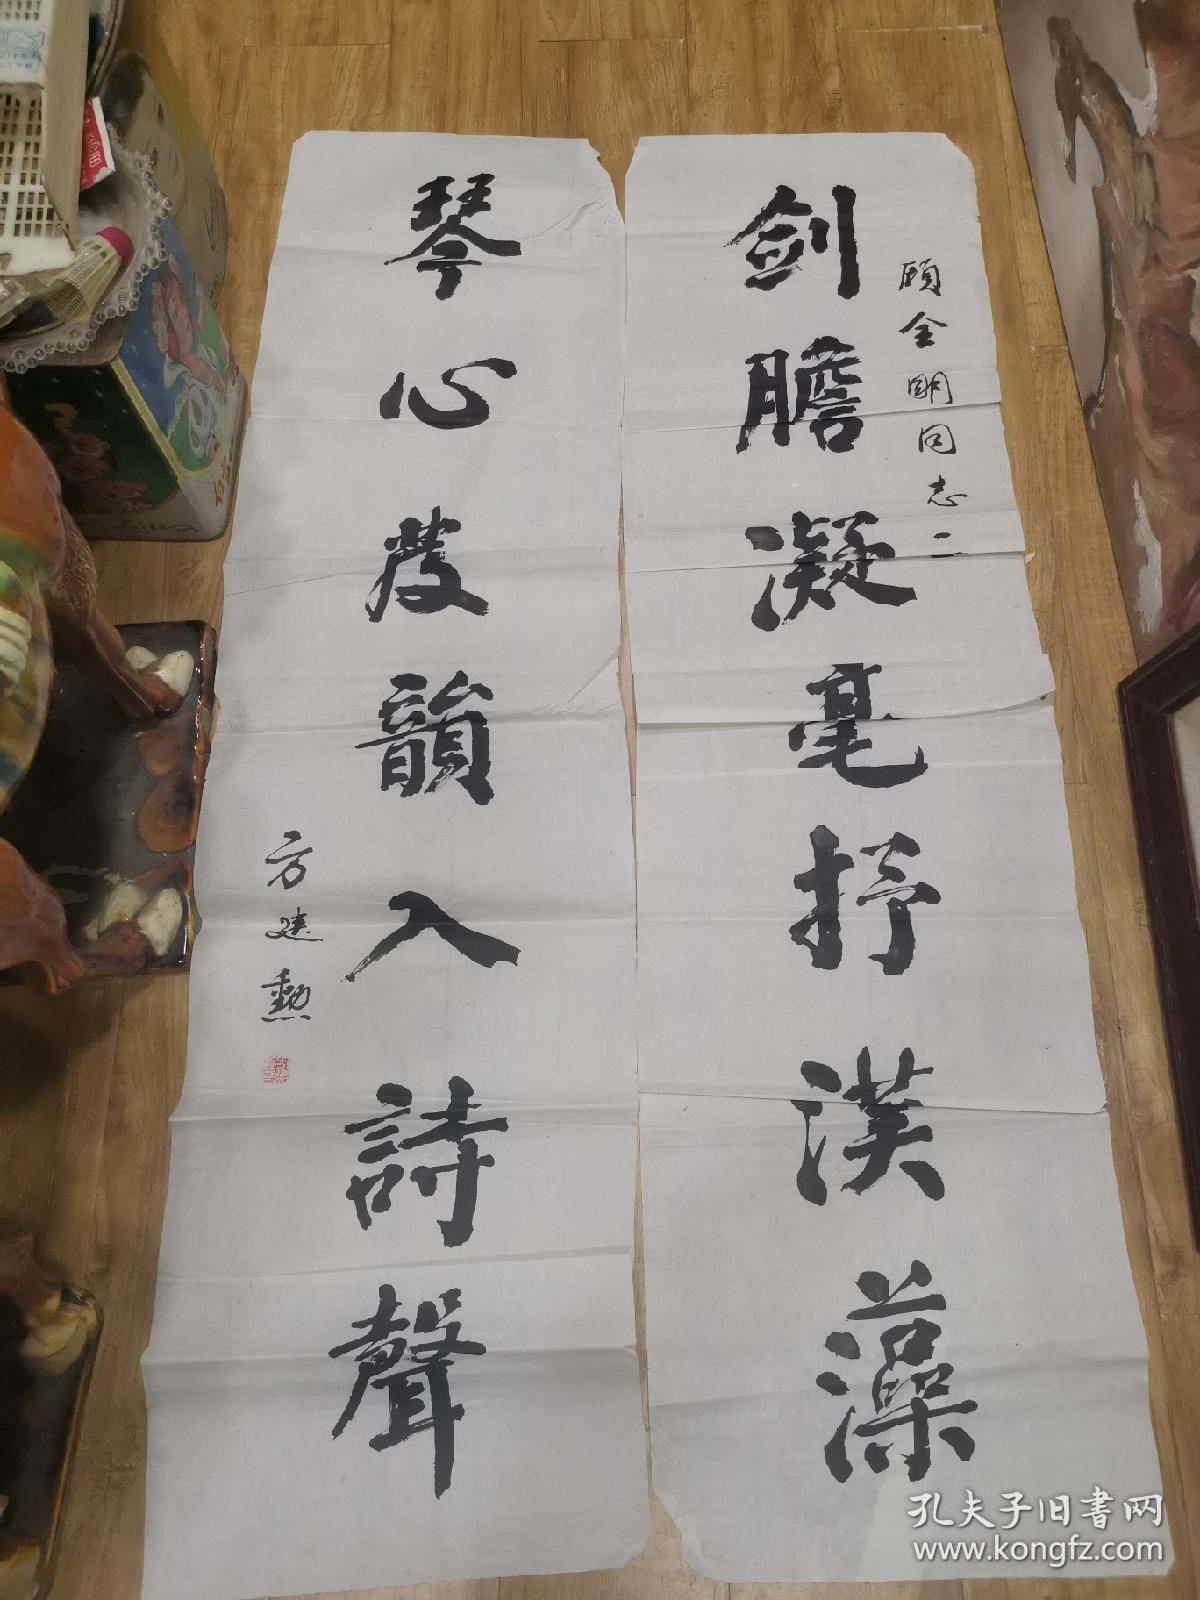 剑膽凝毫抒漢藻
顾全明同志二
琴心发韻入詩聲
方建勳
孔夫子旧書网
www.kongfz.com